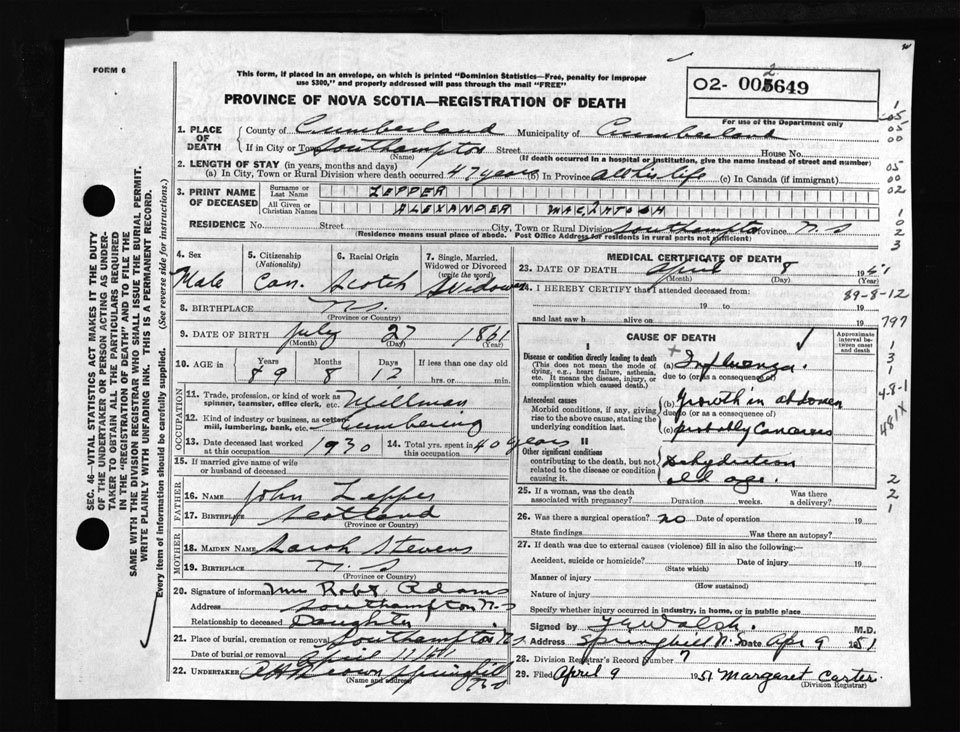 FORM 6
This form, if placed in an envelope, on which is printed "Dominion Statistics—Free, penalty for improper
use $300," and properly addressed will pass through the mail "FREE"
PROVINCE OF NOVA SCOTIA—REGISTRATION OF DEATH
02- 00 649
For use of the Department only
1. PLACE OF DEATH
County of Cumberland Municipality of Cumberland
If in City or Town Southampton Street House No.
(Name) (If death occurred in a hospital or institution, give the name instead of street and number)
2. LENGTH OF STAY (in years, months and days)
(a) In City, Town or Rural Division where death occurred 47 years (b) In Province all his life (c) In Canada (if immigrant)
3. PRINT NAME OF DECEASED
Surname or Last Name LEPPER
All Given or Christian Names ALEXANDER MACINTOSH
RESIDENCE No. Street City, Town or Rural Division Southampton Province N.S
(Residence means usual place of abode. Post Office Address for residents in rural parts not sufficient)
4. Sex Male
5. Citizenship (Nationality) Can.
6. Racial Origin Scotch
7. Single, Married, Widowed or Divorced (write the word) Widower
8. BIRTHPLACE N.S.
(Province or Country)
9. DATE OF BIRTH July 27 1861
(Month) (Day) (Year)
10. AGE IN Years 89 Months 8 Days 12 If less than one day old hrs. or min.
OCCUPATION
11. Trade, profession, or kind of work as spinner, teamster, office clerk, etc. Millman
12. Kind of industry or business, as cotton mill, lumbering, bank, etc. Lumbering
13. Date deceased last worked at this occupation 1930
14. Total yrs. spent in this occupation 40 years
15. If married give name of wife or husband of deceased
FATHER
16. Name John Lepper
17. Birthplace Scotland
(Province or Country)
MOTHER
18. Maiden Name Sarah Stevens
19. Birthplace N.S
(Province or Country)
20. Signature of informant Mrs Robt Adams
Address Southampton N.S
Relationship to deceased Daughter
21. Place of burial, cremation or removal Southampton N.S.
Date of burial or removal April 11/51
22. UNDERTAKER Brown Springhill
(Name and address)
MEDICAL CERTIFICATE OF DEATH
23. DATE OF DEATH April 8 1951
(Month) (Day) (Year)
24. I HEREBY CERTIFY that I attended deceased from:
19 to 19
and last saw h alive on 19
89-8-12
797
CAUSE OF DEATH
Approximate interval between onset and death
Disease or condition directly leading to death
(This does not mean the mode of dying, e.g., heart failure, asthenia, etc. It means the disease, injury, or complication which caused death.)
(a) Influenza.
due to (or as a consequence of)
Antecedent causes
Morbid conditions, if any, giving rise to the above cause, stating the underlying condition last.
(b) Growth in abdomen
due to (or as a consequence of)
(c) probably Cancerous
II
Other significant conditions
contributing to the death, but not related to the disease or condition causing it.
Dehydration
old age.
25. If a woman, was the death associated with pregnancy? Duration weeks. Was there a delivery?
26. Was there a surgical operation? no Date of operation 19
State findings Was there an autopsy?
27. If death was due to external causes (violence) fill in also the following:—
Accident, suicide or homicide? Date of injury 19
(State which)
Manner of injury
(How sustained)
Nature of injury
Specify whether injury occurred in industry, in home, or in public place
Signed by Walsh M.D.
Address Springhill N.S Date Apr 9 1951
28. Division Registrar's Record Number 7
29. Filed April 9 1951 Margaret Carter
(Division Registrar)
SEC. 46—VITAL STATISTICS ACT MAKES IT THE DUTY
OF THE UNDERTAKER OR PERSON ACTING AS UNDER-
TAKER TO OBTAIN ALL THE PARTICULARS REQUIRED
IN THE "REGISTRATION OF DEATH" AND TO FILE THE
SAME WITH THE DIVISION REGISTRAR WHO SHALL ISSUE THE BURIAL PERMIT.
WRITE PLAINLY WITH UNFADING INK. THIS IS A PERMANENT RECORD.
Every item of information should be carefully supplied. (See reverse side for instructions.)